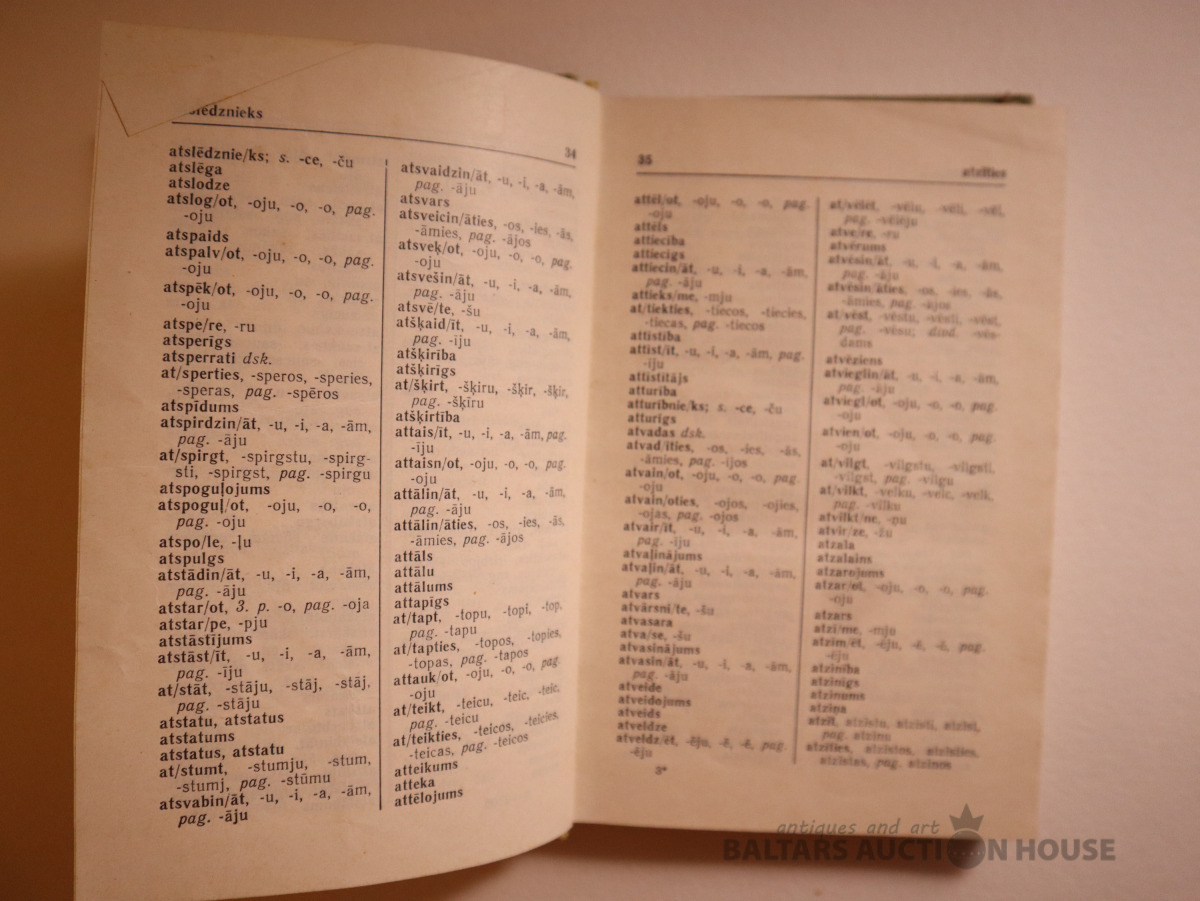 34
atslēdznie/ks; s. -ce, -ču
atslēga
atslodze
atslog/ot, -oju, -o, -o, pag.
-oju
atspaids
atspalv/ot, -oju, -o, -o, pag.
-oju
atspēk/ot, -oju, -o, -o, pag.
-oju
atspe/re, -ru
atsperīgs
atsperrati dsk.
at/sperties, -speros, -speries,
-speras, pag. -spēros
atspīdums
atspirdzin/āt, -u, -i, -a, -ām,
pag. -āju
at/spirgt, -spirgstu, -spirg-
sti, -spirgst, pag. -spirgu
atspoguļojums
atspoguļ/ot, -oju, -o, -o,
pag. -oju
atspo/le, -ļu
atspulgs
atstādin/āt, -u, -i, -a, -ām,
pag. -āju
atstar/ot, 3. p. -o, pag. -oja
atstar/pe, -pju
atstāstījums
atstāst/īt, -u, -i, -a, -ām,
pag. -īju
at/stāt, -stāju, -stāj, -stāj,
pag. -stāju
atstatu, atstatus
atstatums
atstatus, atstatu
at/stumt, -stumju, -stum,
-stumj, pag. -stūmu
atsvabin/āt, -u, -i, -a, -ām,
pag. -āju
atsvaidzin/āt, -u, -i, -a, -ām,
pag. -āju
atsvars
atsveicin/āties, -os, -ies, -ās,
-āmies, pag. -ājos
atsveķ/ot, -oju, -o, -o, pag.
-oju
atsvešin/āt, -u, -i, -a, -ām,
pag. -āju
atsvē/te, -šu
atšķaid/īt, -u, -i, -a, -ām,
pag. -īju
atšķirība
atšķirīgs
at/šķirt, -šķiru, -šķir, -šķir,
pag. -šķīru
atšķirtība
attais/īt, -u, -i, -a, -ām, pag.
-īju
attaisn/ot, -oju, -o, -o, pag.
-oju
attālin/āt, -u, -i, -a, -ām,
pag. -āju
attālin/āties, -os, -ies, -ās,
-āmies, pag. -ājos
attāls
attālu
attālums
attapīgs
at/tapt, -topu, -topi, -top,
pag. -tapu
at/tapties, -topos, -topies,
-topas, pag. -tapos
attauk/ot, -oju, -o, -o, pag.
-oju
at/teikt, -teicu, -teic, -teic,
pag. -teicu
at/teikties, -teicos, -teicies,
-teicas, pag. -teicos
atteikums
atteka
attēlojums
35
atzīties
attēl/ot, -oju, -o, -o, pag.
-oju
attēls
attiecība
attiecīgs
attiecin/āt, -u, -i, -a, -ām,
pag. -āju
attieks/me, -mju
at/tiekties, -tiecos, -tiecies,
-tiecas, pag. -tiecos
attīstība
attīst/īt, -u, -i, -a, -ām, pag.
-īju
attīstītājs
atturība
atturībnie/ks; s. -ce, -ču
atturīgs
atvadas dsk.
atvad/īties, -os, -ies, -ās,
-āmies, pag. -ījos
atvain/ot, -oju, -o, -o, pag.
-oju
atvain/oties, -ojos, -ojies,
-ojas, pag. -ojos
atvair/īt, -u, -i, -a, -ām,
pag. -īju
atvaļinājums
atvaļin/āt, -u, -i, -a, -ām,
pag. -āju
atvars
atvārsni/te, -šu
atvasara
atva/se, -šu
atvasinājums
atvasin/āt, -u, -i, -a, -ām,
pag. -āju
atveide
atveidojums
atveids
atveldze
atveldz/ēt, -ēju, -ē, -ē, pag.
-ēju
3*
at/vēlēt, -vēlu, -vēli, -vēl,
pag. -vēlēju
atve/re, -ru
atvērums
atvēsin/āt, -u, -i, -a, -ām,
pag. -āju
atvēsin/āties, -os, -ies, -ās,
-āmies, pag. -ājos
at/vēst, -vēstu, -vēsti, -vēst,
pag. -vēsu; divd. -vēs-
dams
atvēziens
atvieglin/āt, -u, -i, -a, -ām,
pag. -āju
atviegl/ot, -oju, -o, -o, pag.
-oju
atvien/ot, -oju, -o, -o, pag.
-oju
at/vilgt, -vilgstu, -vilgsti,
-vilgst, pag. -vilgu
at/vilkt, -velku, -velc, -velk,
pag. -vilku
atvilkt/ne, -ņu
atvir/ze, -žu
atzala
atzalains
atzarojums
atzar/ot, -oju, -o, -o, pag.
-oju
atzars
atzī/me, -mju
atzīm/ēt, -ēju, -ē, -ē, pag.
-ēju
atzinība
atzinīgs
atzinums
atziņa
atzīt, atzīstu, atzīsti, atzīst,
pag. atzinu
atzīties, atzīstos, atzīsties,
atzīstas, pag. atzinos
antiques and art
BALTARS AUCTION HOUSE